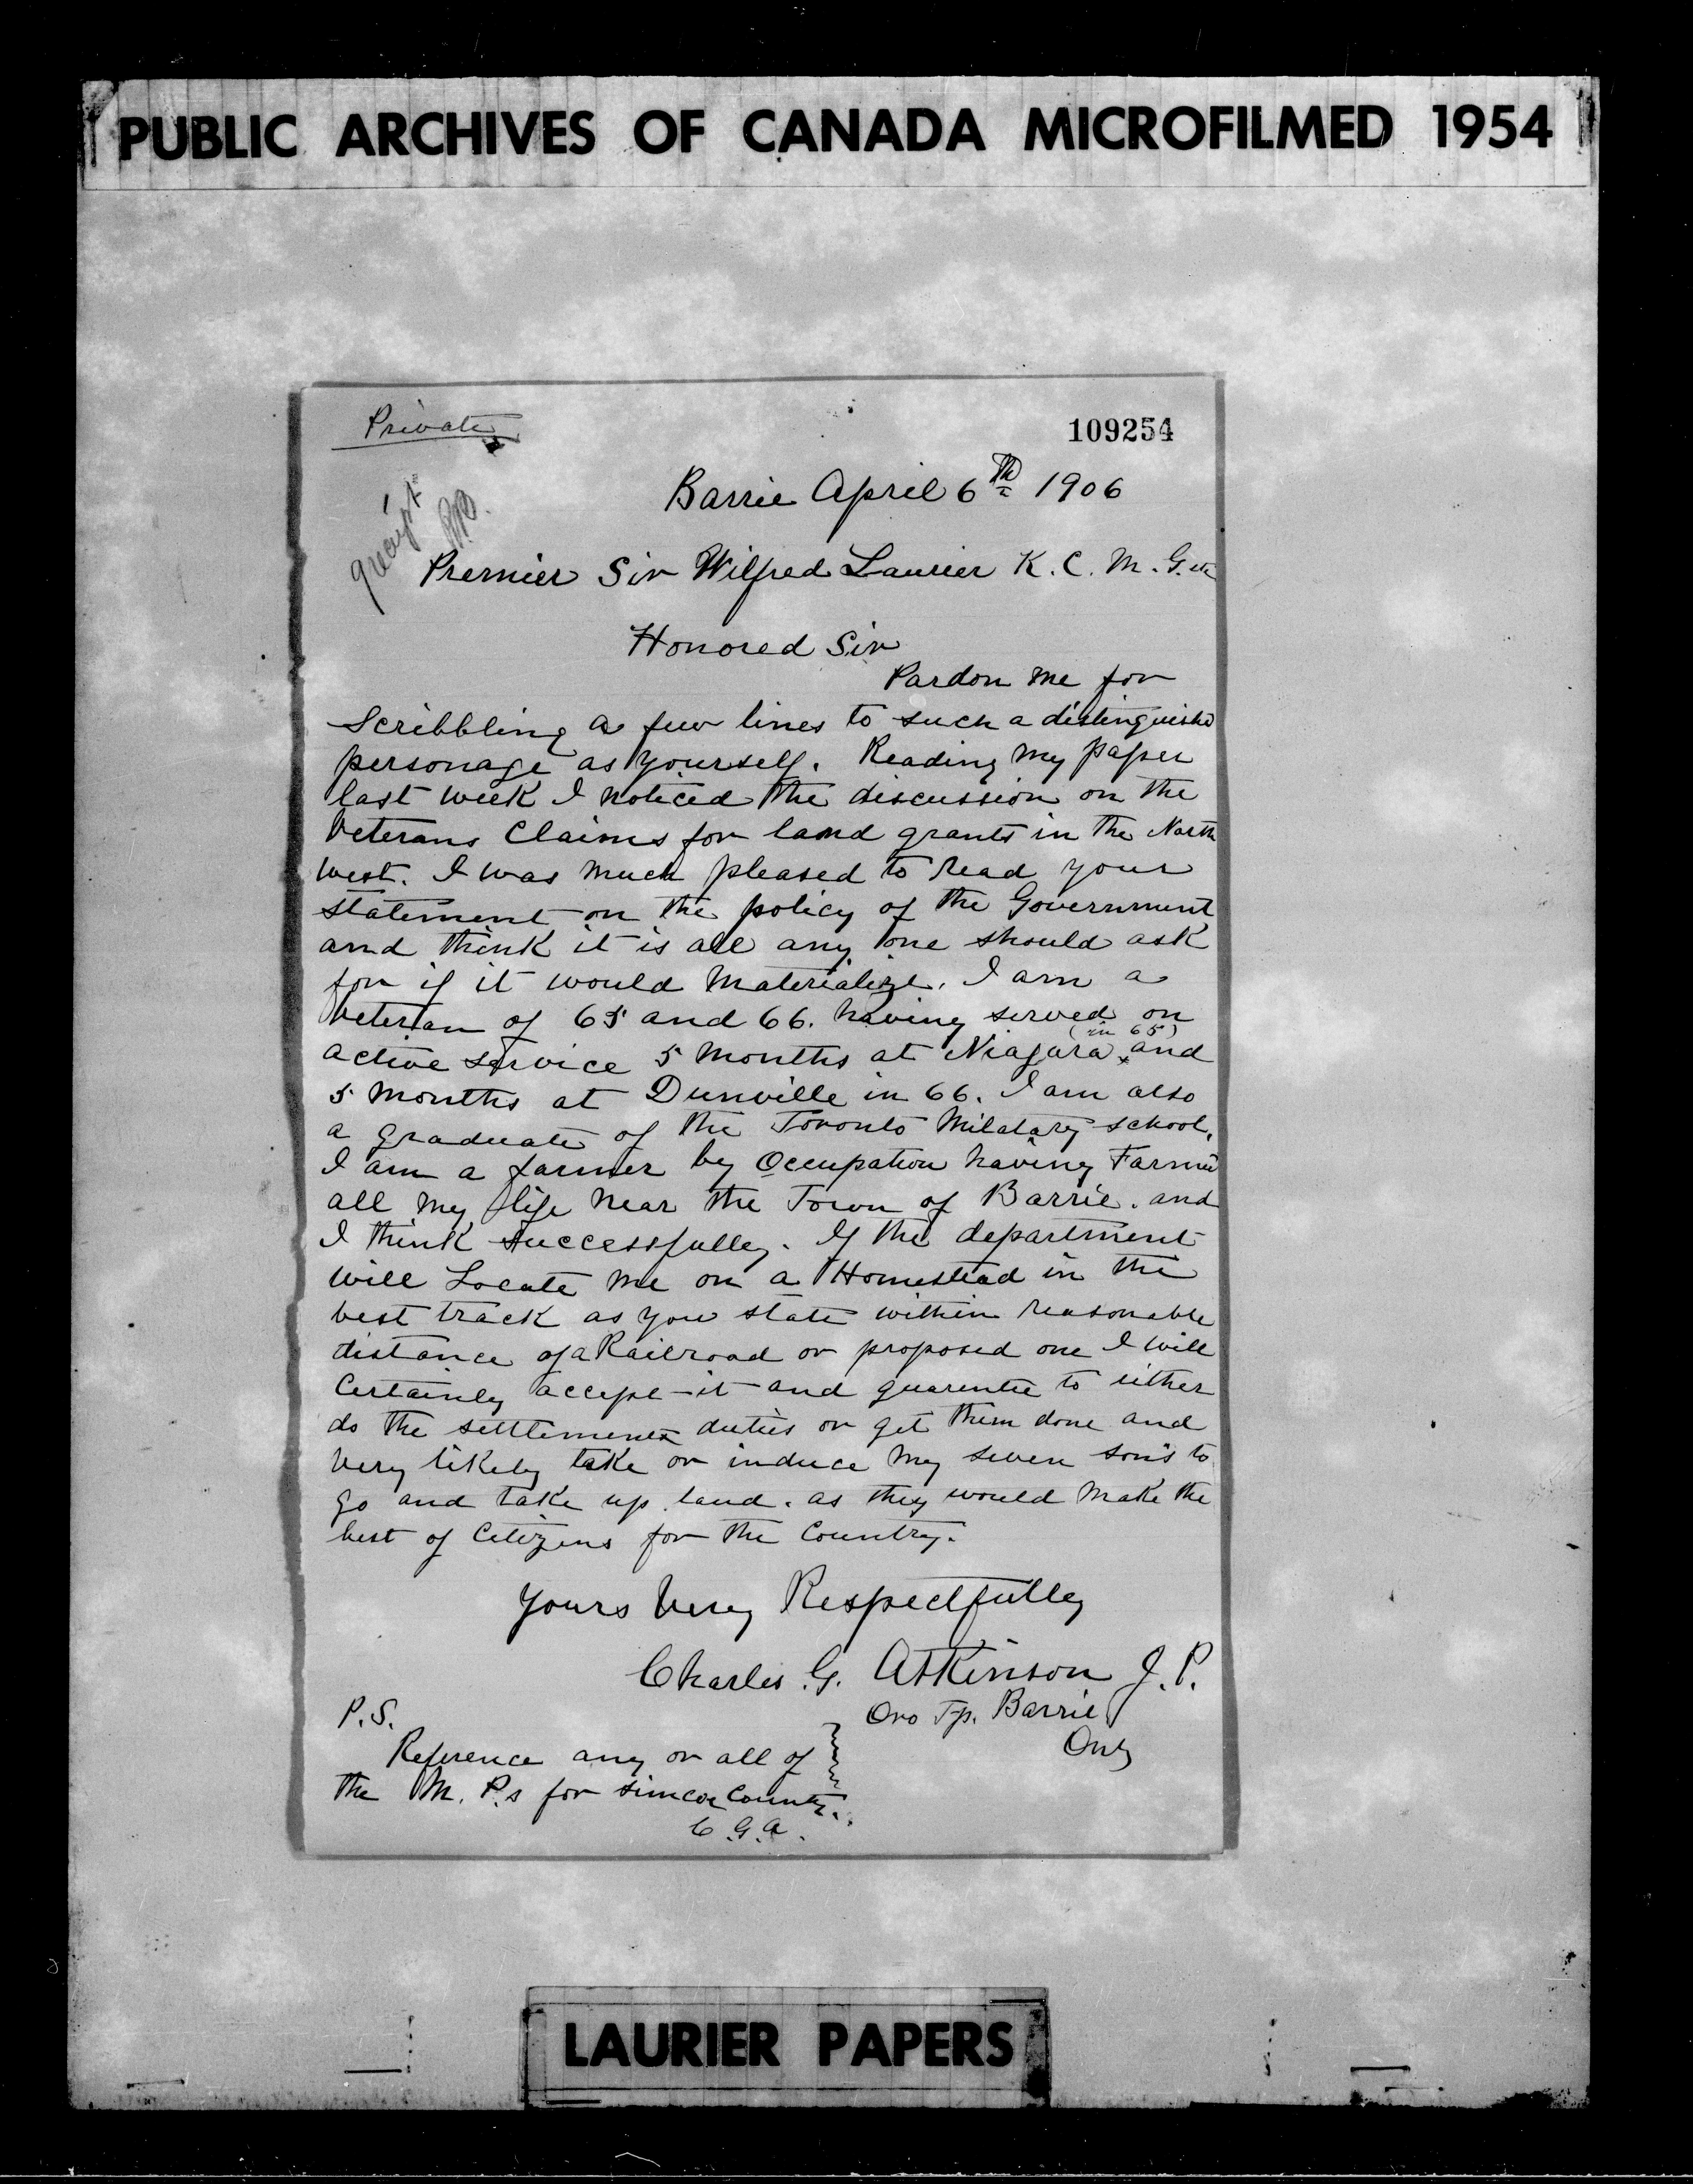 PUBLIC ARCHIVES OF CANADA MICROFILMED 1954
Private
109254
Barrie April 6th 1906
Premier Sir Wilfred Laurier K. C. M. G. etc
Honored Sir
Pardon me for
Scribbling a few lines to such a distinguishd
personage as yourself. Reading my paper
last week I noticed the discussion on the
Veterans Claims for land grants in the North
west. I was much pleased to read your
statement on the policy of the Government
and think it is all any one should ask
for if it would Materialize. I am a
Veteran of 65 and 66. having served on
active service 5 months at Niagara (in 65) and
5 months at Dunville in 66. I am also
a graduate of the Toronto Milatary school.
I am a farmer by Occupation having Farmed
all my life near the Town of Barrie. and
I think successfully. If the department
will Locate me on a Homestead in the
best track as you state within reasonable
distance of a Railroad or proposed one I will
Certainly accept it and guarentee to either
do the settlement duties or get them done and
very likely take or induce my seven son's to
go and take up land. as they would make the
best of Citizens for the Country.
Yours Very Respectfully
Charles. G. Atkinson J. P.
Oro Tp. Barrie
Ont
P.S.
Reference any or all of
the M. P.s for Simcoe County.
C. G. A.
LAURIER PAPERS